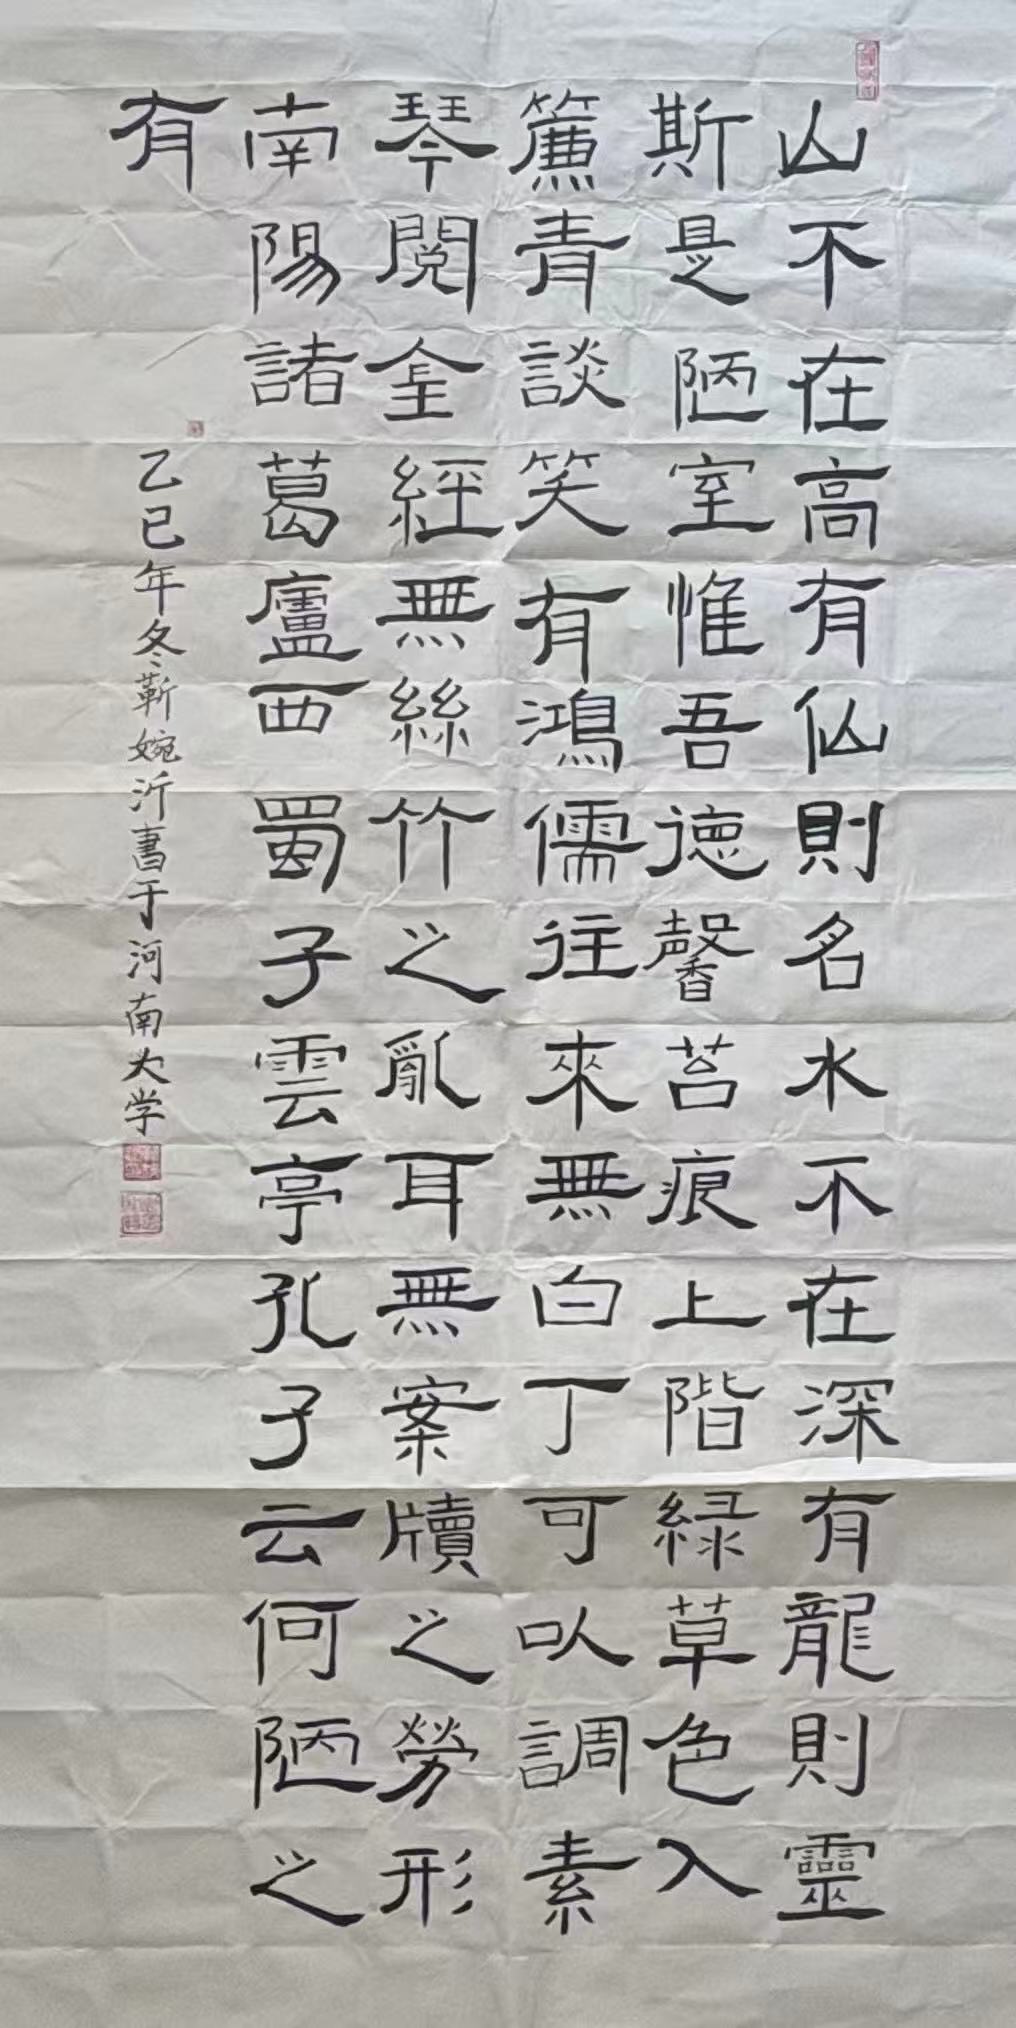 山不在高有仙則名水不在深有龍則靈
斯是陋室惟吾德馨苔痕上階緑草色入
簾青談笑有鴻儒往來無白丁可以調素
琴閱金經無絲竹之亂耳無案牘之勞形
南陽諸葛廬西蜀子雲亭孔子云何陋之
有
乙巳年冬靳婉沂書于河南大学